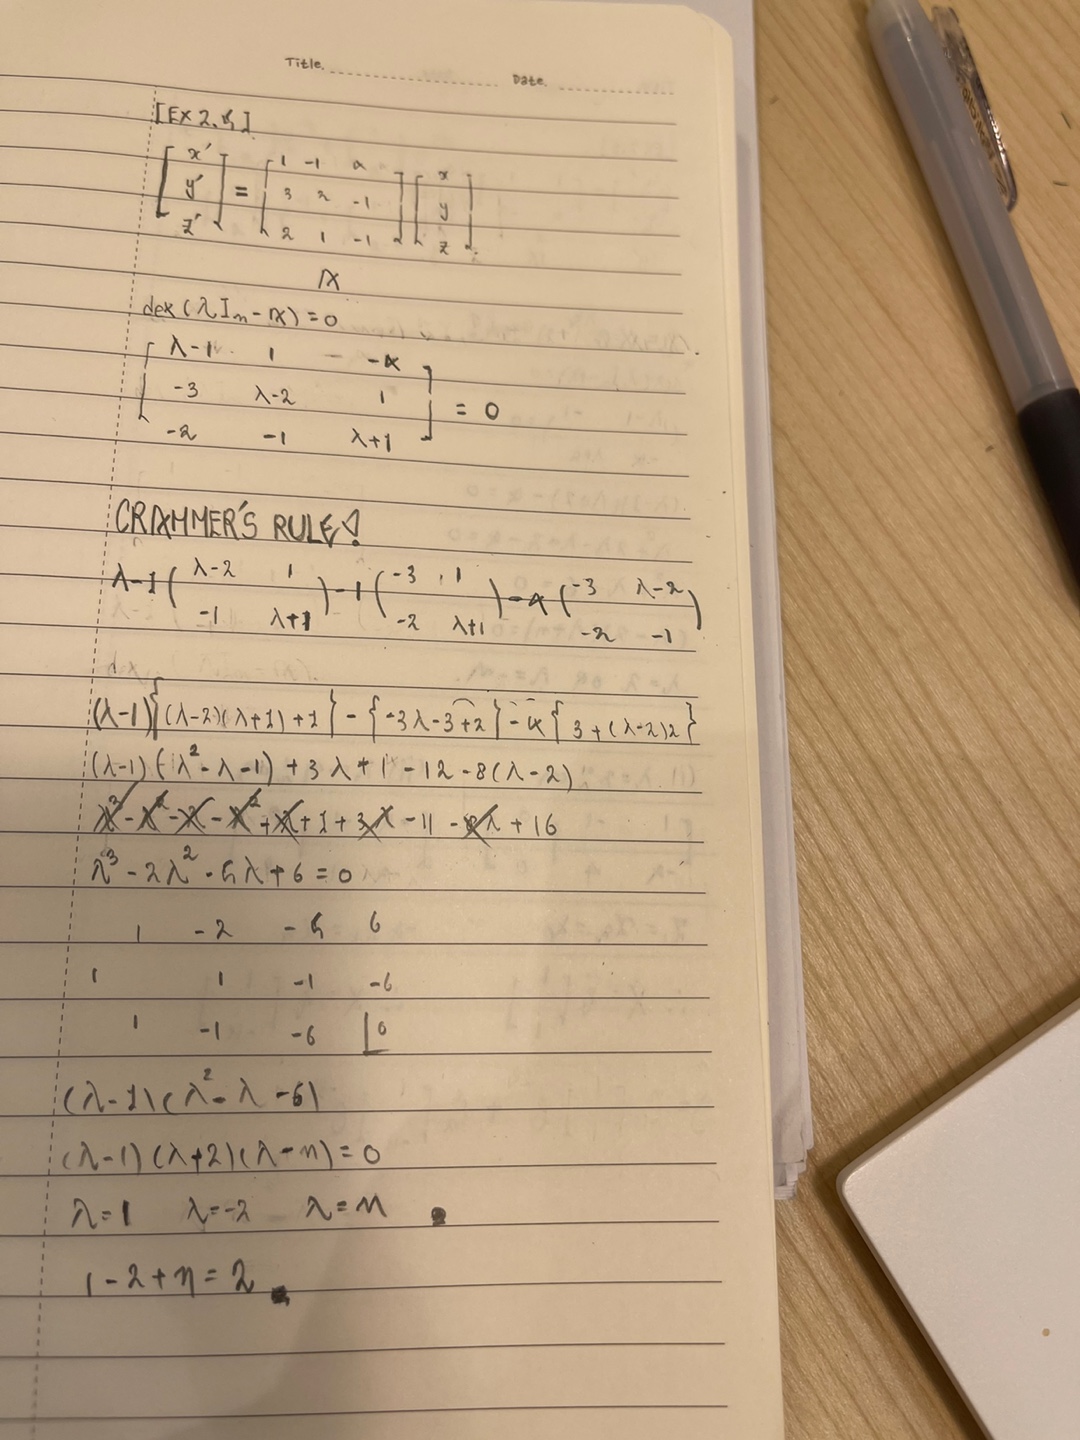 Title.
Date.
[EX 2.5]
[x' y' z'] = [1 -1 4; 3 2 -1; 2 1 -1] [x y z]
A
det(λIn - A) = 0
[λ-1 1 -4; -3 λ-2 1; -2 -1 λ+1] = 0
CRAMMER'S RULE!
λ-1 (λ-2 1; -1 λ+1) -1 (-3 1; -2 λ+1) -4 (-3 λ-2; -2 -1)
(λ-1){(λ-2)(λ+1)+1} - {-3λ-3+2} -4{3+(λ-2)2}
(λ-1)(λ²-λ-1) + 3λ + 1 - 12 - 8(λ-2)
λ³ - λ² - λ - λ² + λ + 1 + 3λ - 11 - 8λ + 16
λ³ - 2λ² - 5λ + 6 = 0
1 -2 -5 6
1 1 -1 -6
1 -1 -6 |0
(λ-1)(λ²-λ-6)
(λ-1)(λ+2)(λ-3) = 0
λ=1 λ=-2 λ=3
1-2+3=2